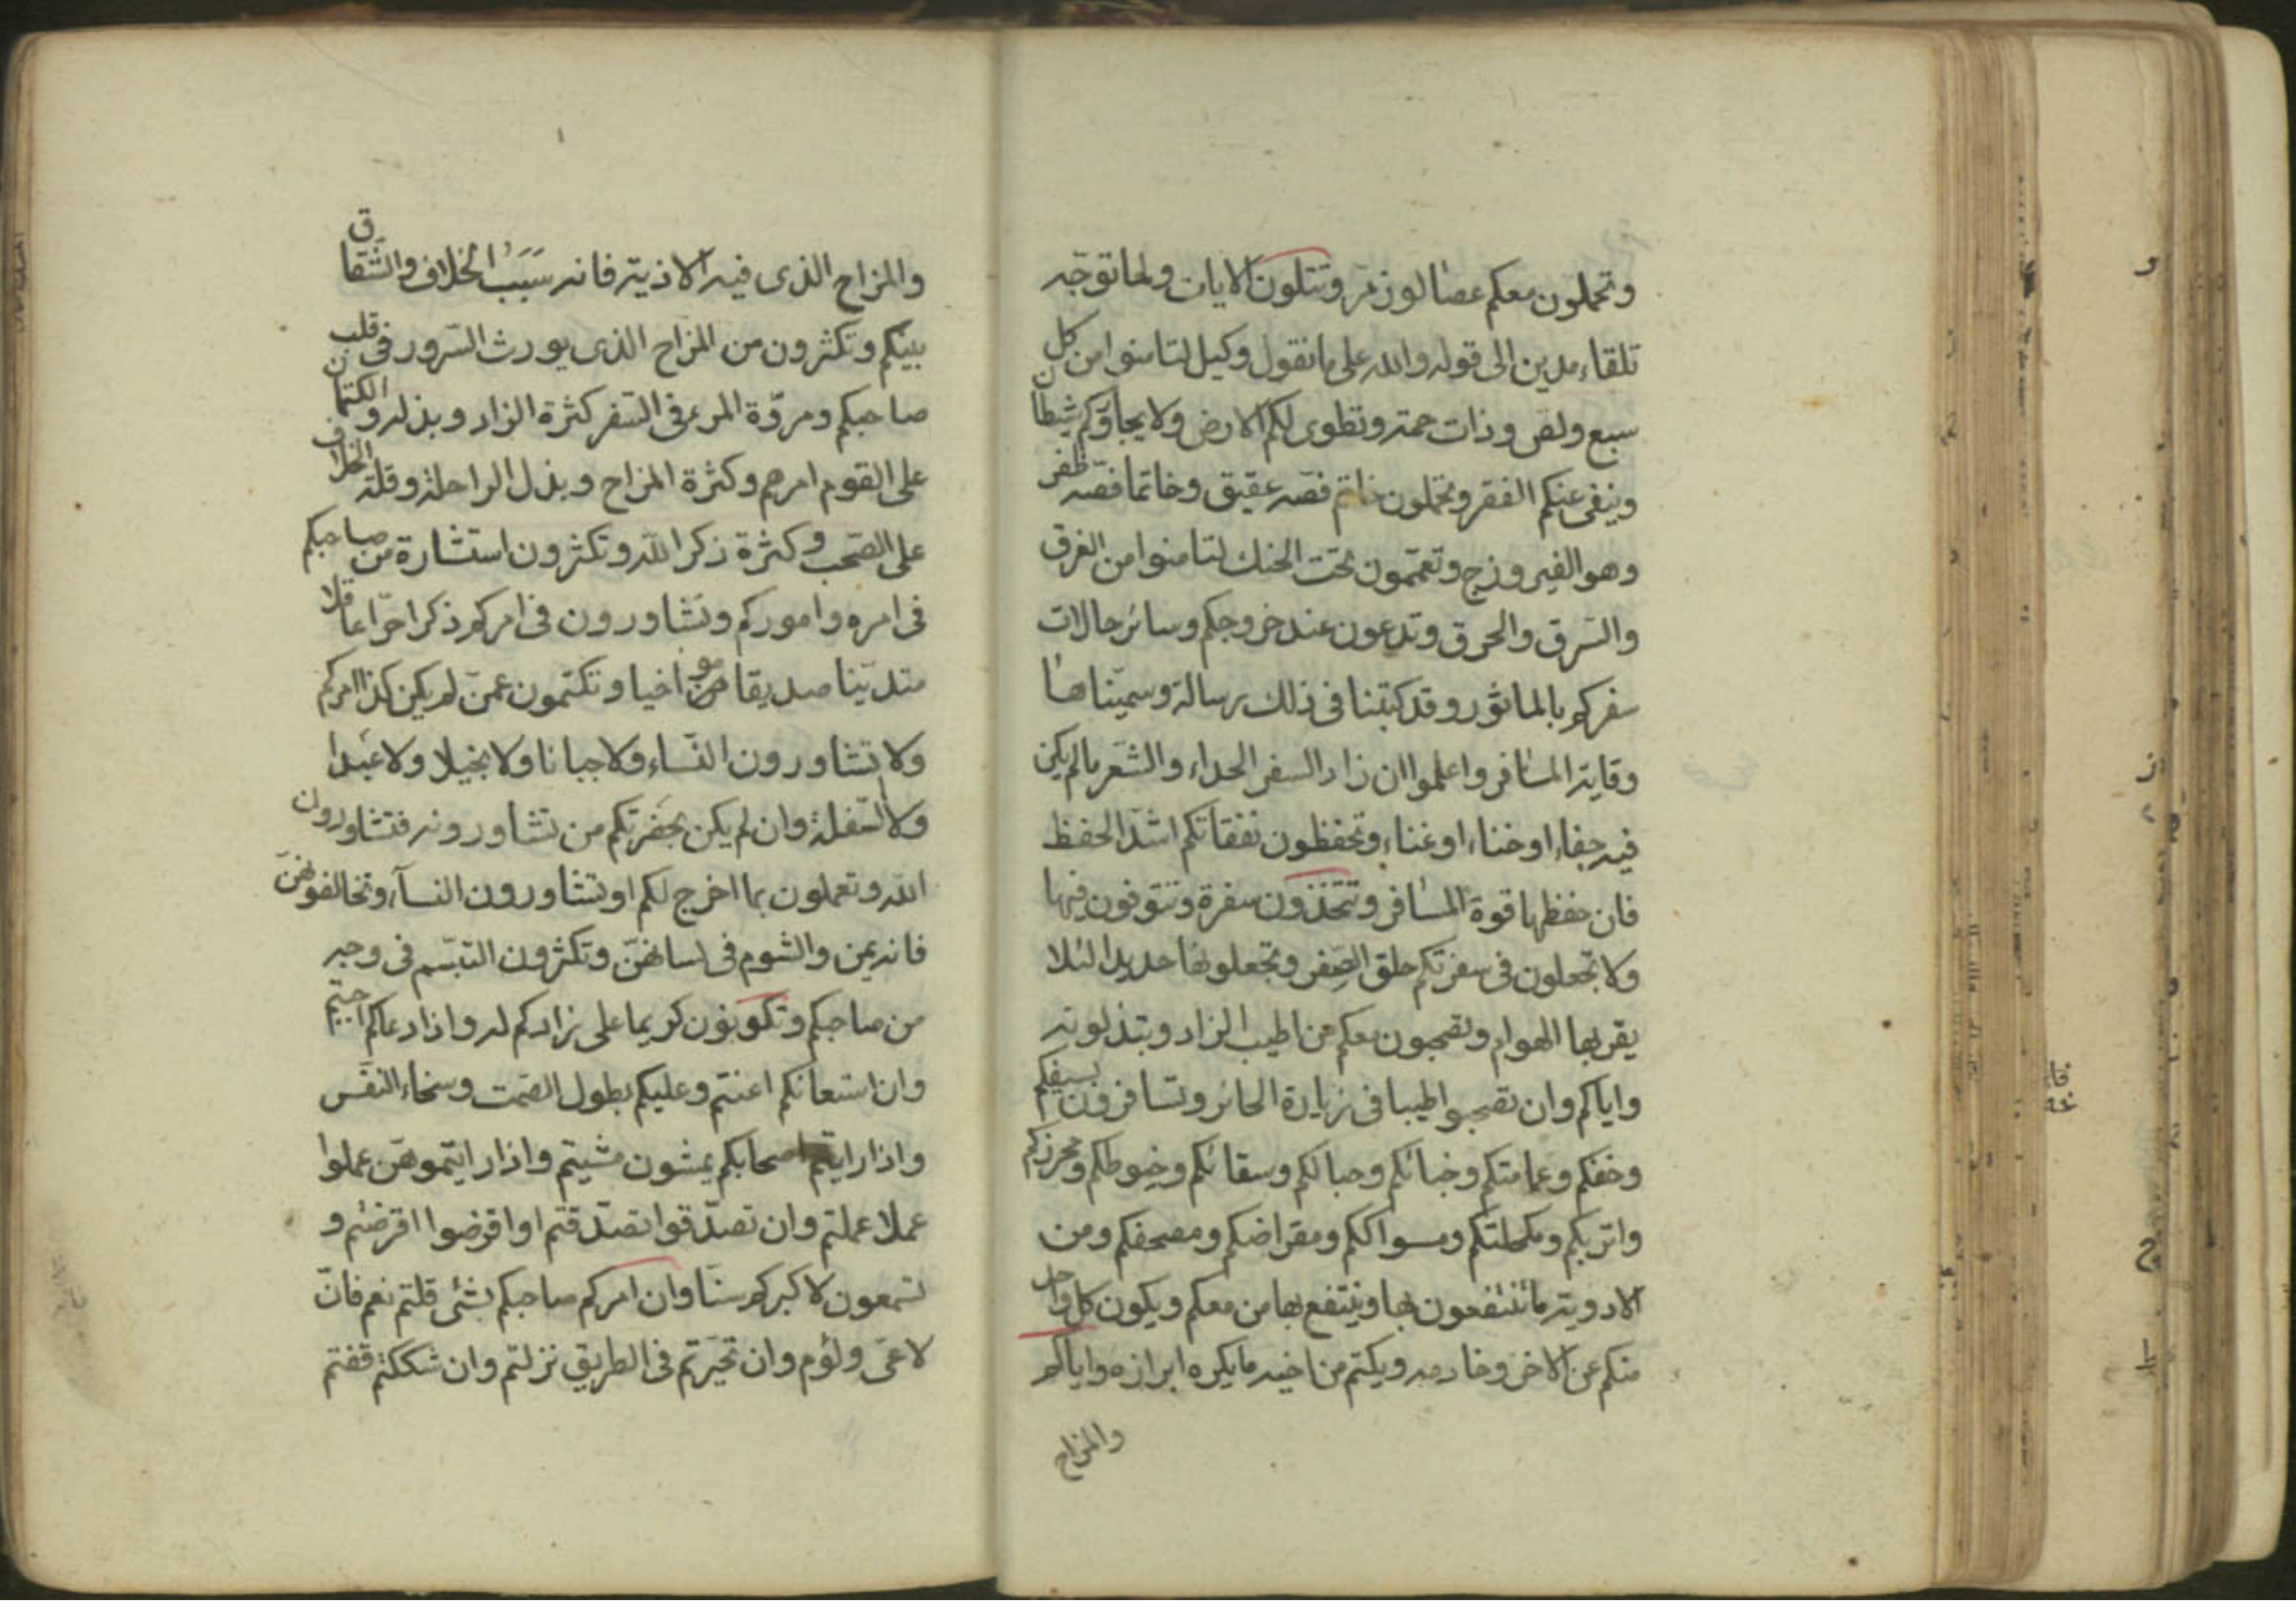 وتحملون معكم عصا لوز مرّ وتتلون الايات ولما توجّه
تلقاء مدين الى قوله والله على ما نقول وكيل لتامنوا من كل
سبع ولص وذات حمة وتطوى لكم الارض ولا يجاوركم شيطان
وينفى عنكم الفقر وتحملون خاتم فصّه عقيق وخاتما فصّه ظفر
وهو الفيروزج وتعتمّون تحت الحنك لتامنوا من الغرق
والسّرق والحرق وتدعون عند خروجكم وسائر حالات
سفركم بالماثور وقد كتبنا فى ذلك رسالة وسمّيناها
وقاية المسافر واعلموا ان زاد السفر الحداء والشعر ما لم يكن
فيه جفاء او خناء او غناء وتحفظون نفقاتكم اشدّ الحفظ
فان حفظها قوة المسافر وتتخذون سفرة وتتوقون فيها
ولا تجعلون فى سفرتكم حلق الصّفر وتجعلونها حديدا لئلا
يقربها الهوام وتصحبون معكم من اطيب الزاد وتبذلونه
واياكم وان تصحبوا طيبا فى زيارة الحائر وتسافرون بسيفكم
وخفكم وعمامتكم وخبائكم وحبالكم وسقائكم وخيوطكم ومخرزكم
واتربكم ومكحلتكم ومسواككم ومقراضكم ومصحفكم ومن
الادوية ما تنتفعون بها وينتفع بها من معكم ويكون كل واحد
منكم عن الاخر وخادمه ويكتم من اخيه ما يكره ابرازه واياكم
والمزاح
والمزاح الذى فيه الاذية فانه سَبَبُ الخلاف والشّقاق
بينكم وتكثرون من المزاح الذى يورث السّرور فى قلب
صاحبكم ومروّة المرء فى السّفر كثرة الزاد وبذله والكتمان
على القوم امرهم وكثرة المزاح وبذل الراحلة وقلّة الخلاف
على الصّحب وكثرة ذكر الله وتكثرون استشارة من صاحبكم
فى امره واموركم وتشاورون فى امركم ذكرا حرّا عاقلا
متديّنا صديقا مواخيا وتكتمون عمّن لم يكن كذا امركم
ولا تشاورون النّساء ولا جبانا ولا بخيلا ولا عَبدا
ولا السّفلة وان لم يكن بحضرتكم من تشاورونه فتشاورون
الله وتعملون بما اخرج لكم او تشاورون النسآء وتخالفوهنّ
فانه يمن والشوم فى لسانهنّ وتكثرون التبسّم فى وجه
من صاحبكم وتكونون كريما على زادكم له واذا دعاكم اجبتم
وان استعانكم اعنتم وعليكم بطول الصّمت وسخاء النفس
واذا رايتم اصحابكم يمشون مشيتم واذا رايتموهن عملوا
عملا عملتم وان تصدّقوا تصدّقتم او اقرضوا اقرضتم و
تسمعون لاكبركم سنّا وان امركم صاحبكم بشئ قلتم نعم فانّ
لا عىّ ولؤم وان تحيّرتم فى الطريق نزلتم وان شككتم قفتم